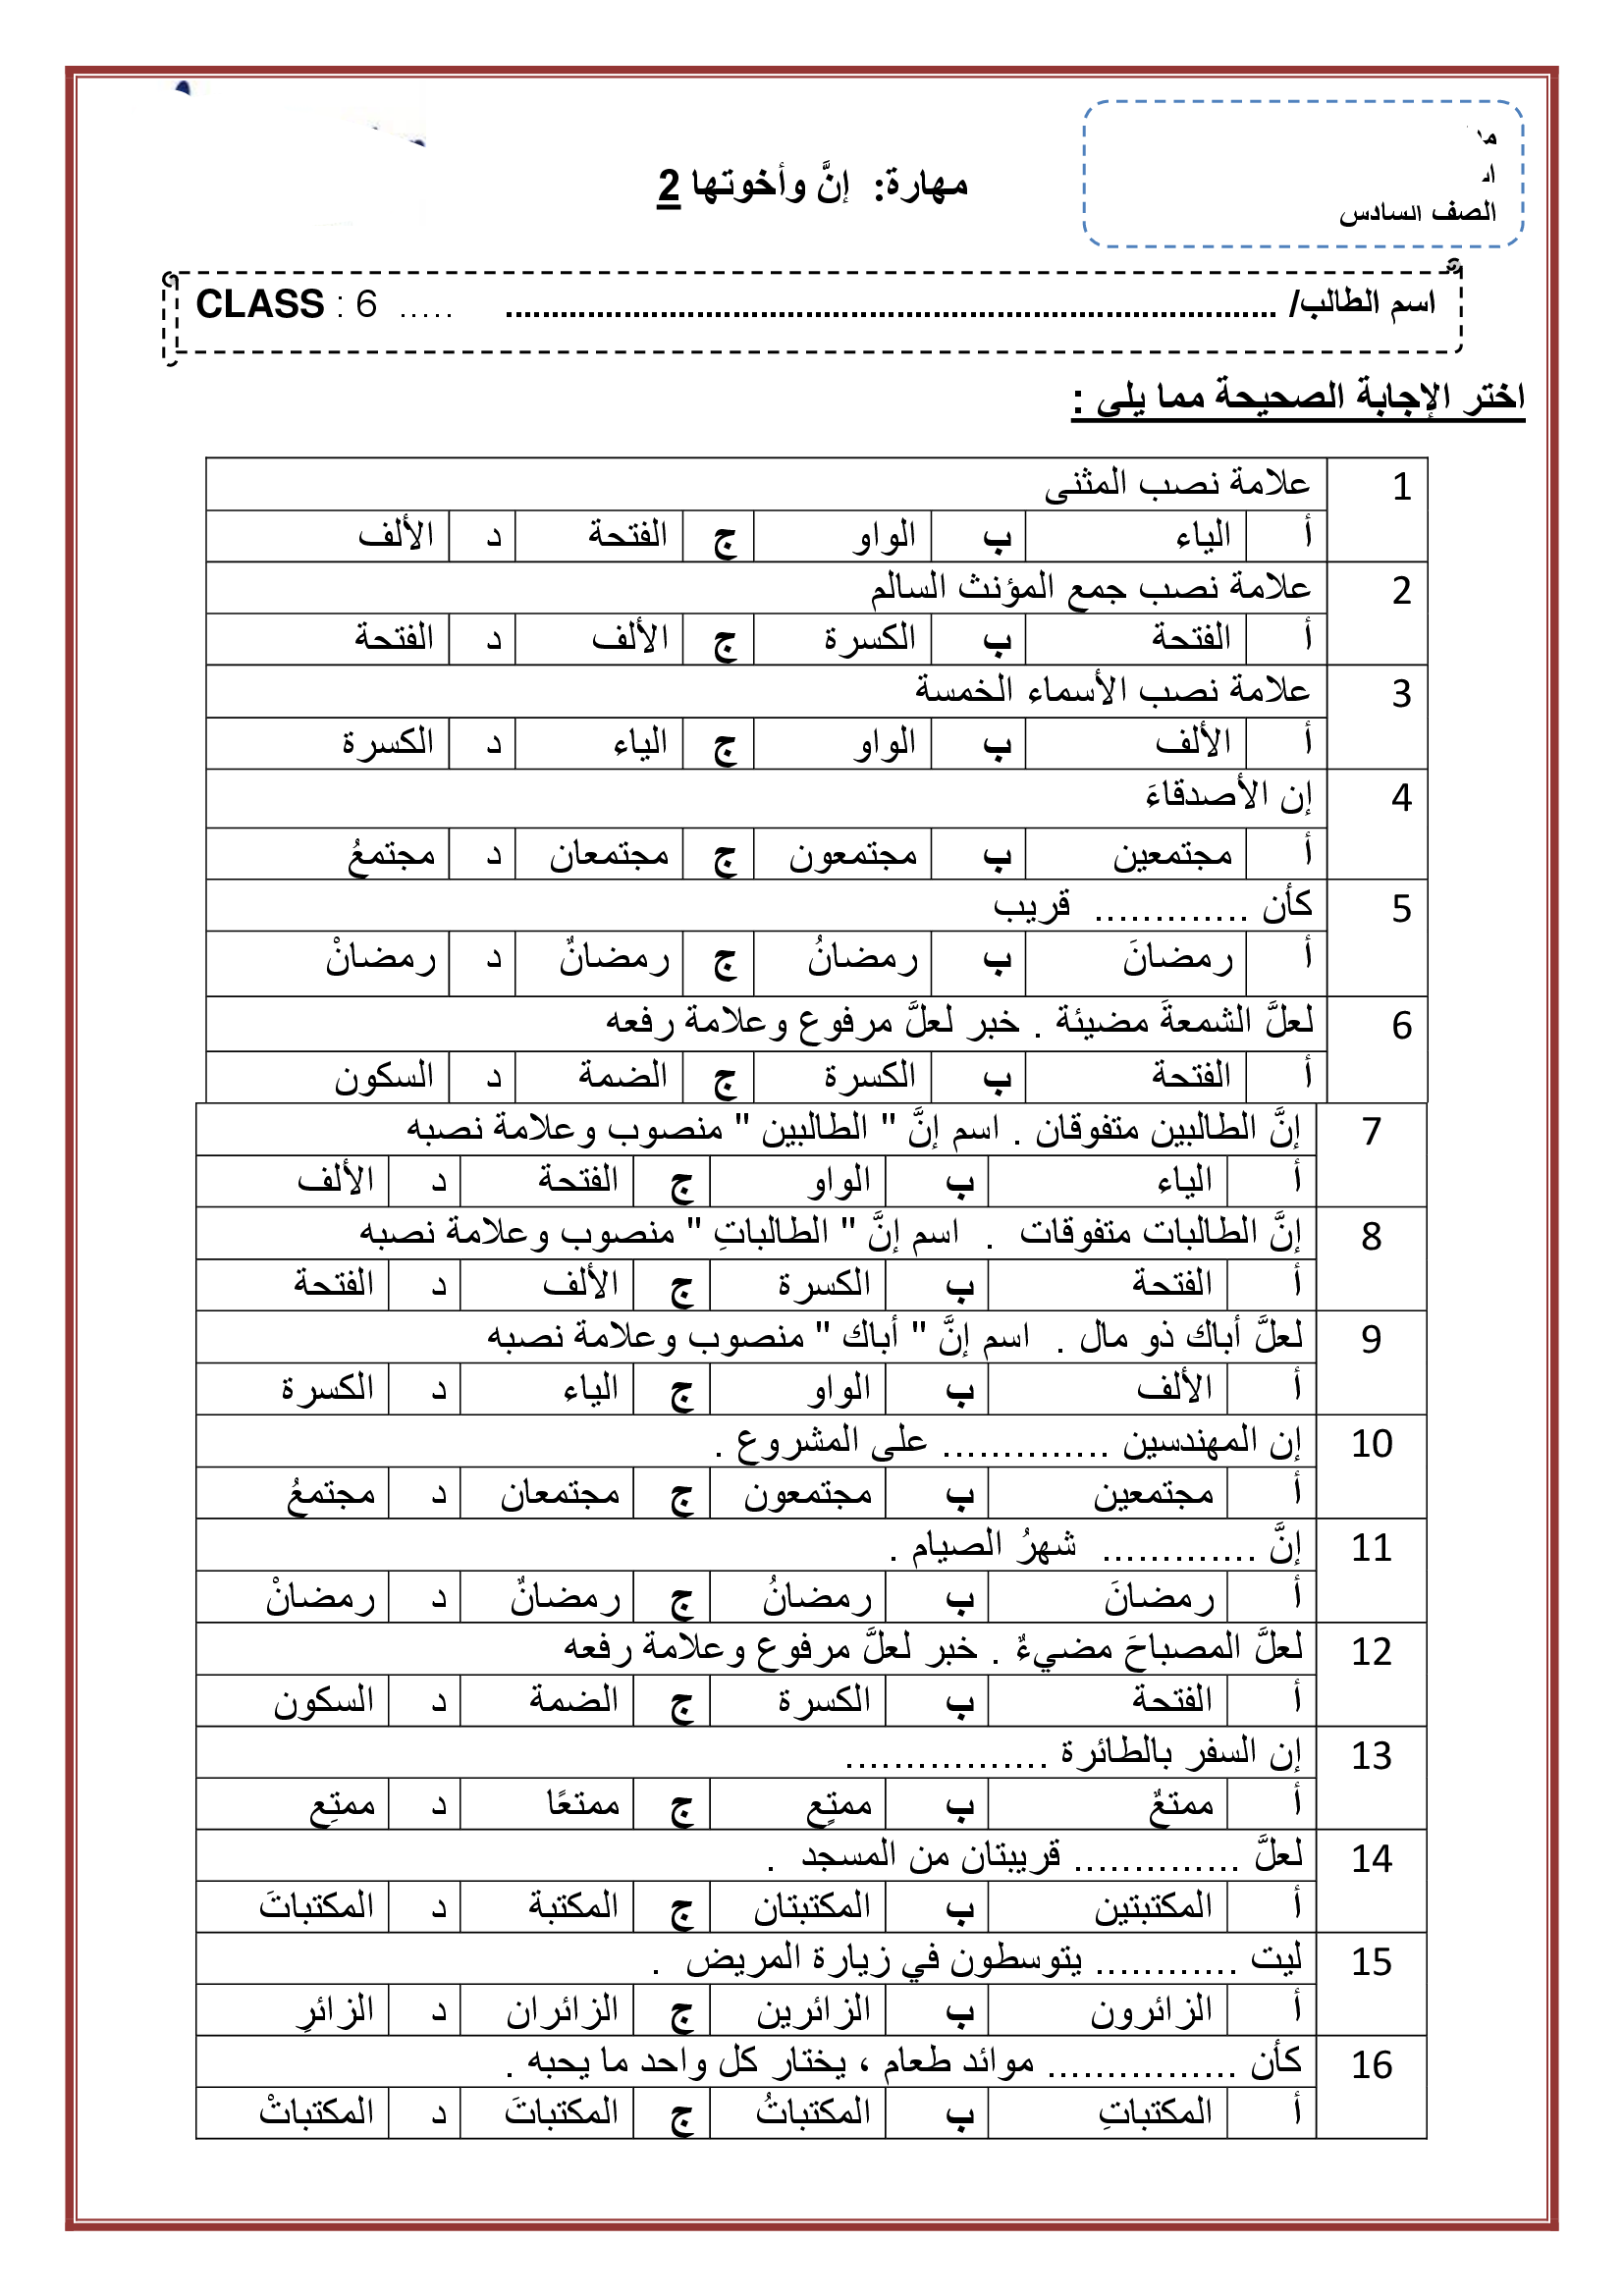 الصف السادس
مهارة: إنَّ وأخوتها 2
اسم الطالب/ ..................................................................................... CLASS : 6 .....
اختر الإجابة الصحيحة مما يلي :
1 علامة نصب المثنى
أ الياء ب الواو ج الفتحة د الألف
2 علامة نصب جمع المؤنث السالم
أ الفتحة ب الكسرة ج الألف د الفتحة
3 علامة نصب الأسماء الخمسة
أ الألف ب الواو ج الياء د الكسرة
4 إن الأصدقاءَ
أ مجتمعين ب مجتمعون ج مجتمعان د مجتمعُ
5 كأن ............. قريب
أ رمضانَ ب رمضانُ ج رمضانٌ د رمضانْ
6 لعلَّ الشمعةَ مضيئة . خبر لعلَّ مرفوع وعلامة رفعه
أ الفتحة ب الكسرة ج الضمة د السكون
7 إنَّ الطالبين متفوقان . اسم إنَّ " الطالبين " منصوب وعلامة نصبه
أ الياء ب الواو ج الفتحة د الألف
8 إنَّ الطالبات متفوقات . اسم إنَّ " الطالباتِ " منصوب وعلامة نصبه
أ الفتحة ب الكسرة ج الألف د الفتحة
9 لعلَّ أباك ذو مال . اسم إنَّ " أباك " منصوب وعلامة نصبه
أ الألف ب الواو ج الياء د الكسرة
10 إن المهندسين .............. على المشروع .
أ مجتمعين ب مجتمعون ج مجتمعان د مجتمعُ
11 إنَّ ............. شهرُ الصيام .
أ رمضانَ ب رمضانُ ج رمضانٌ د رمضانْ
12 لعلَّ المصباحَ مضيءٌ . خبر لعلَّ مرفوع وعلامة رفعه
أ الفتحة ب الكسرة ج الضمة د السكون
13 إن السفر بالطائرة .................
أ ممتعٌ ب ممتعٍ ج ممتعًا د ممتعِ
14 لعلَّ .............. قريبتان من المسجد .
أ المكتبتين ب المكتبتان ج المكتبة د المكتباتَ
15 ليت ............ يتوسطون في زيارة المريض .
أ الزائرون ب الزائرين ج الزائران د الزائرِ
16 كأن ................ موائد طعام ، يختار كل واحد ما يحبه .
أ المكتباتِ ب المكتباتُ ج المكتباتَ د المكتباتْ